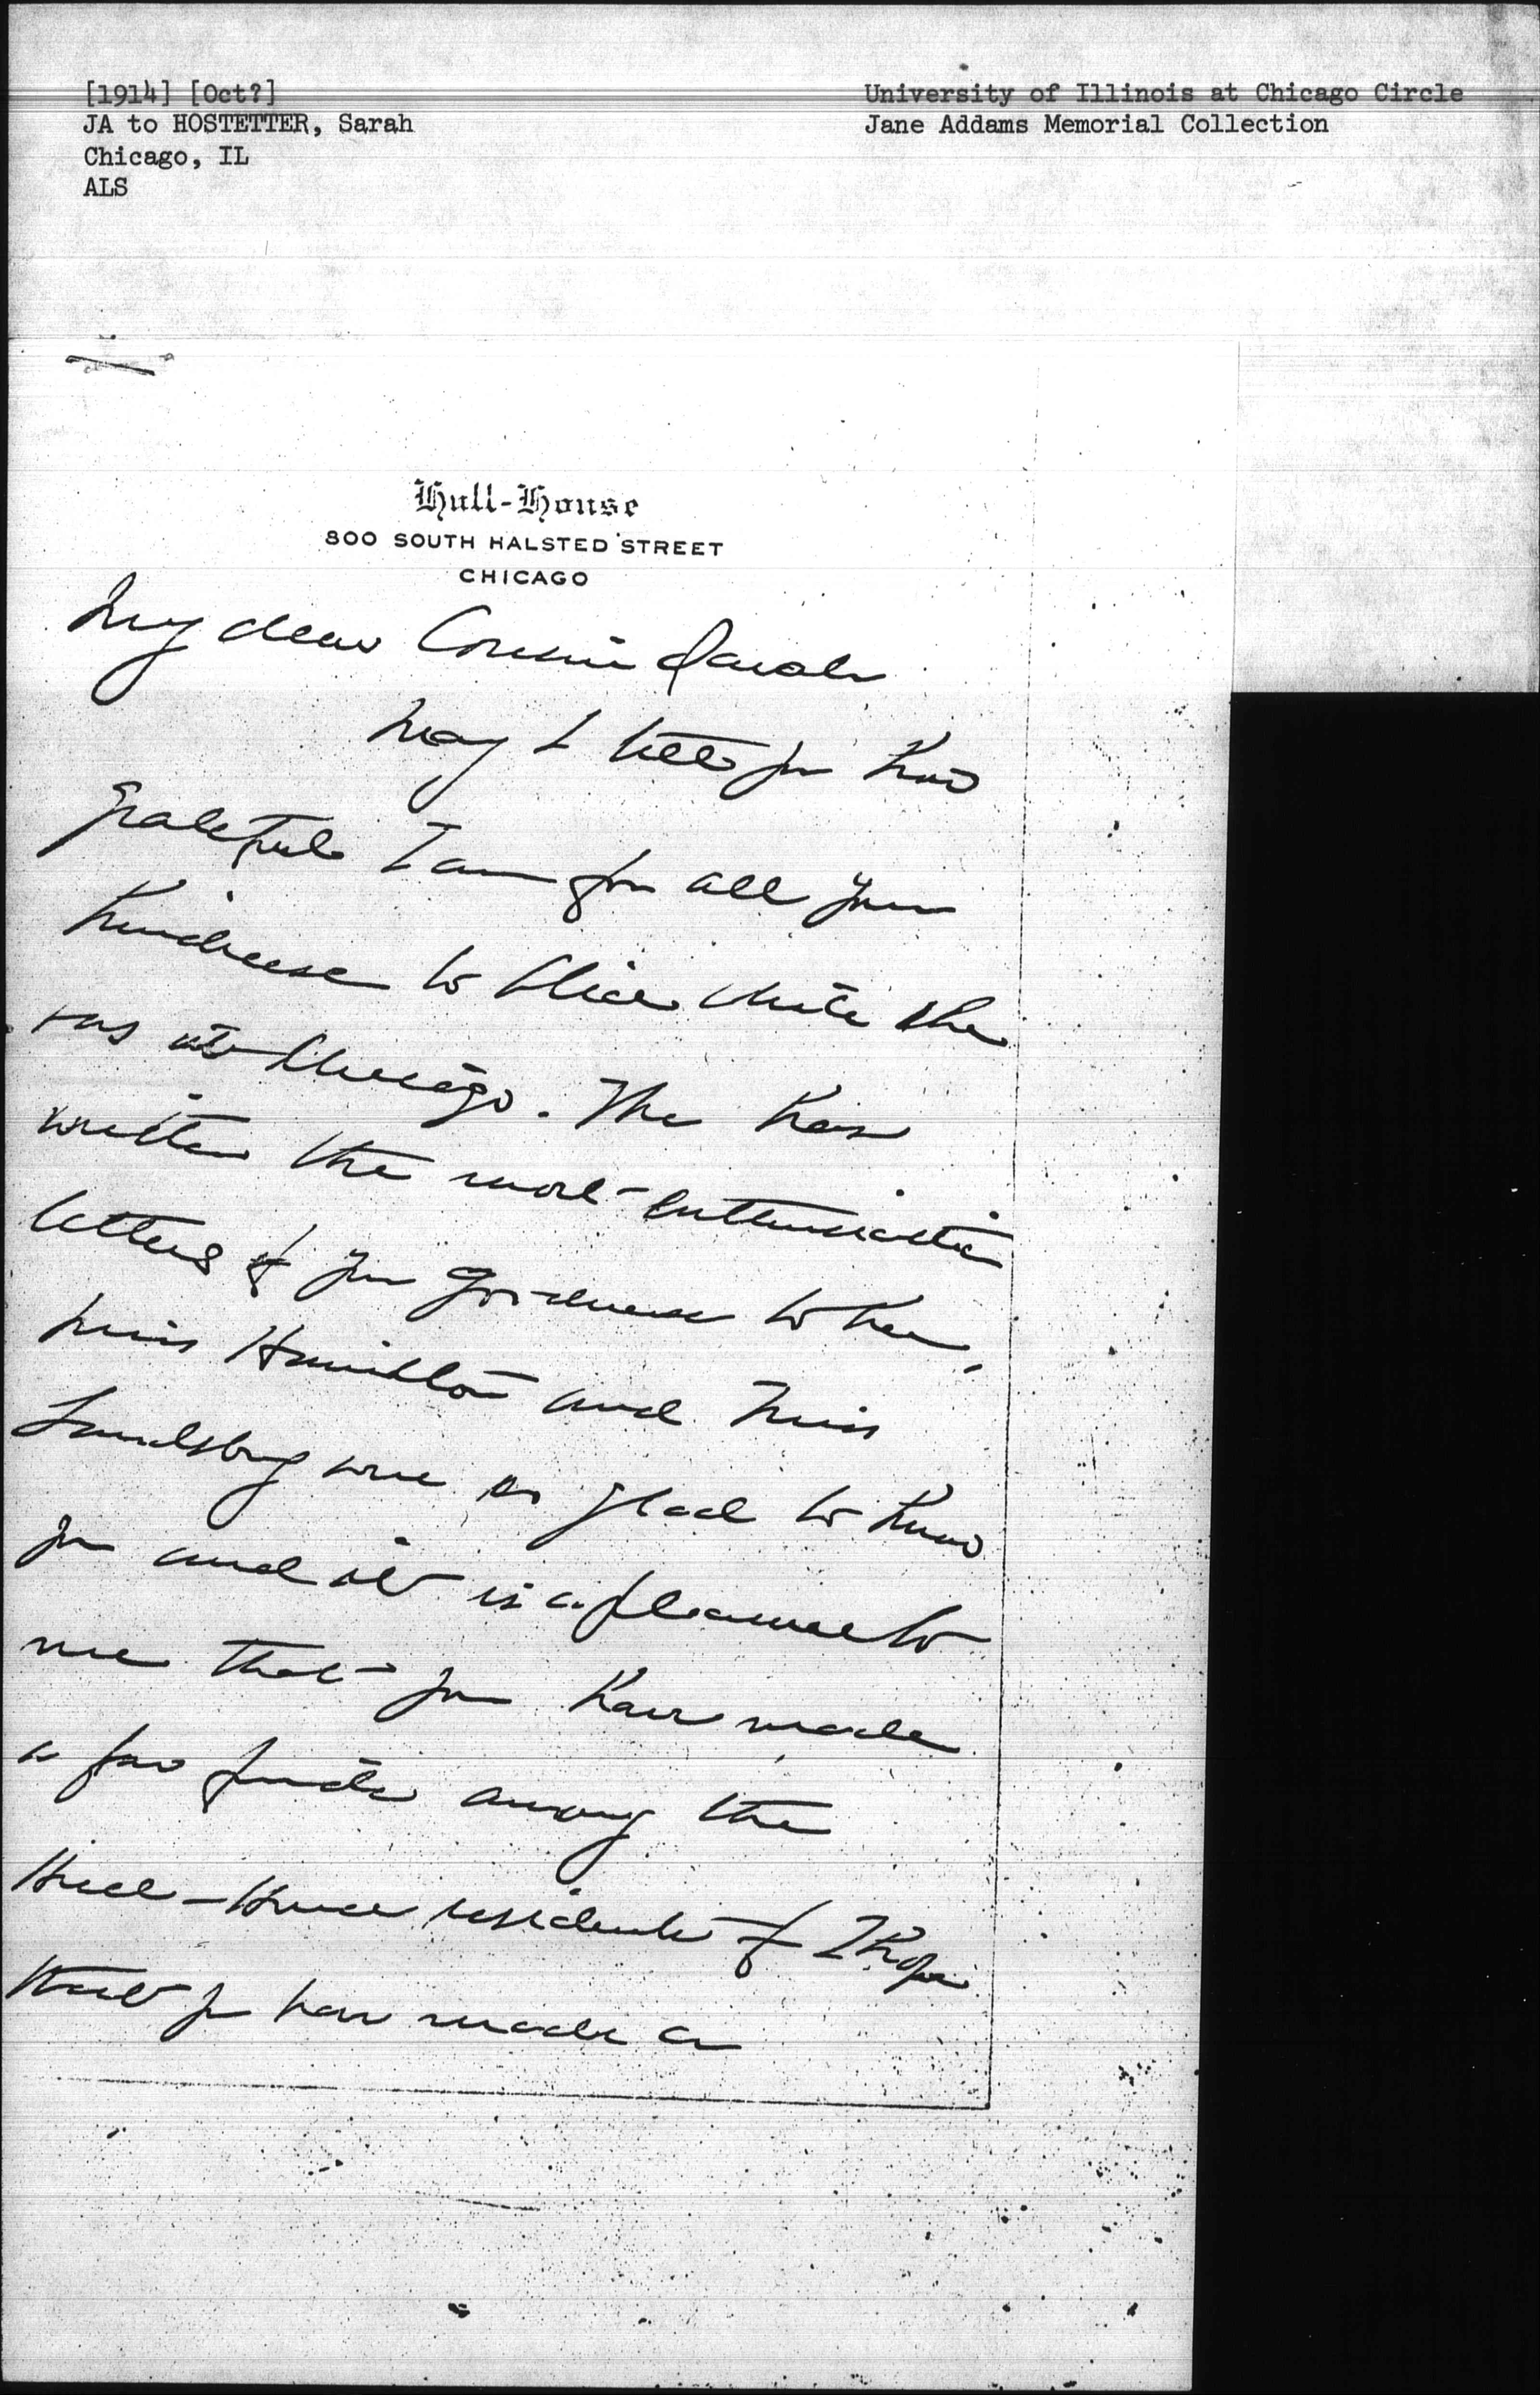 [1914] [Oct?]
JA to HOSTETTER, Sarah
Chicago, IL
ALS
University of Illinois at Chicago Circle
Jane Addams Memorial Collection
Hull-House
800 SOUTH HALSTED STREET
CHICAGO
My dear Cousin Sarah
May I tell you how
grateful I am for all your
kindness to Alice while she
was in Chicago. She has
written the most enthusiastic
letters of your goodness to her,
Miss Hamilton and Miss
Landsberg were so glad to know
you and it is a pleasure to
me that you have made
a few friends among the
Hull-House residents & I hope
that you have made a